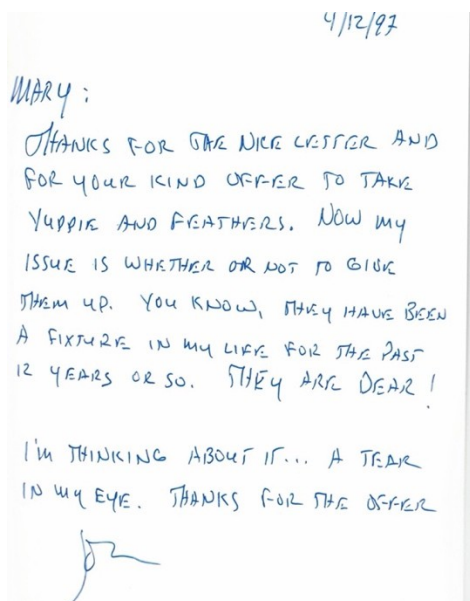 4/12/97
MARY:
THANKS FOR THE NICE LETTER AND
FOR YOUR KIND OFFER TO TAKE
YUPPIE AND FEATHERS. NOW MY
ISSUE IS WHETHER OR NOT TO GIVE
THEM UP. YOU KNOW, THEY HAVE BEEN
A FIXTURE IN MY LIFE FOR THE PAST
12 YEARS OR SO. THEY ARE DEAR!
I'M THINKING ABOUT IT... A TEAR
IN MY EYE. THANKS FOR THE OFFER